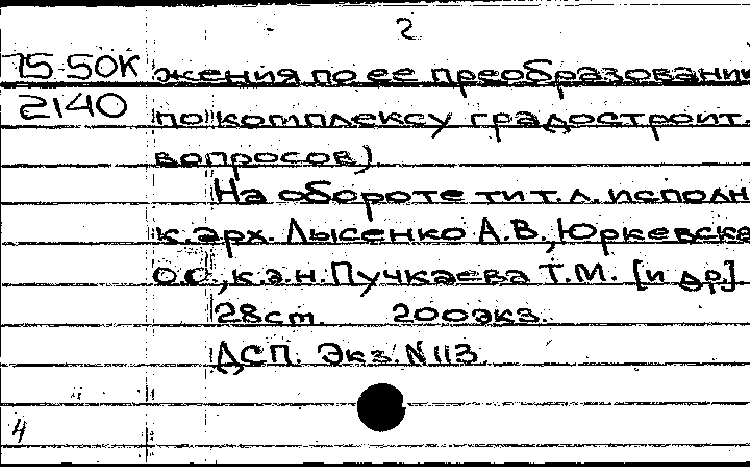 2
75-50К жения по ее преобразовани
2140 по комплексу градостроит.
вопросов).
На обороте тит.л. исполн
к.арх. Лысенко А.В., Юркевска
О.О., к.э.н. Пучкаева Т.М. [и др].
28ст. 200экз.
ДСП. Экз. N 113.
4